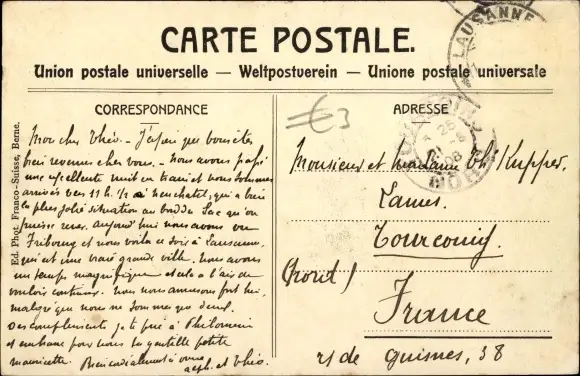 CARTE POSTALE.
Union postale universelle — Weltpostverein — Unione postale universale
LAUSANNE
CORRESPONDANCE
ADRESSE
€3
Ed. Phot. Franco-Suisse, Berne.
Mon cher Théo. - J'espère que vous êtes
bien revenus chez vous. - Nous avons passé
une excellente nuit en train et nous sommes
arrivés vers 11 h. 1/2 à Neuchatel, qui a bien
la plus jolie situation au bord du Lac qu'on
puisse rever. Aujourd'hui nous avons vu
Fribourg et nous voilà ce soir à Lausanne,
qui est une vraie grande ville. Nous avons
un temps magnifique et cela a l'air de
vouloir continuer. Nous nous amusons fort bien,
malgré que nous ne sommes que deux.
Des compliments je te prie à Philomène
et embrasse pour nous la gentille petite
Mauricette. Bien cordialement à vous
et Théo.
Monsieur et Madame Th. Kupper.
Tourcoing.
(Nord)
France
r. de Guisnes, 38